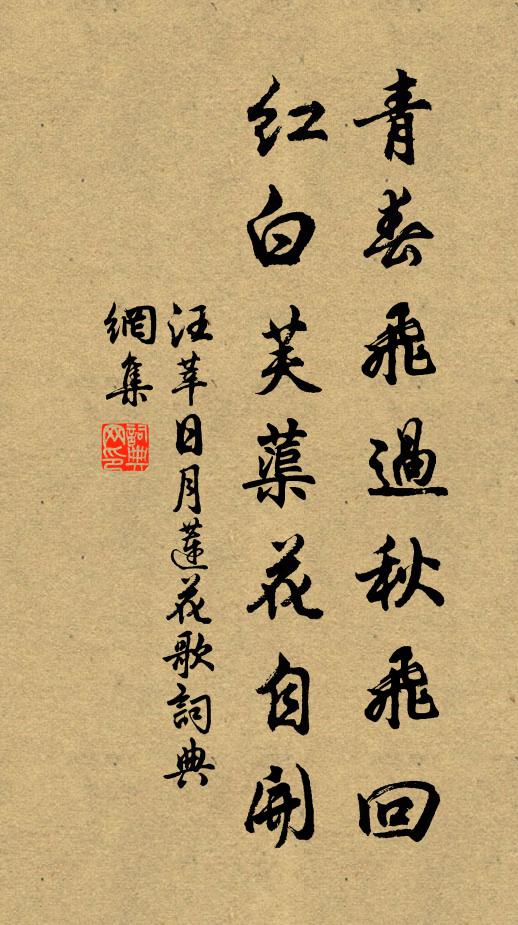 青春飛過秋飛回
紅白芙蕖花自開
汪莘日月蓮花歌詞典
網集
詞典
网印